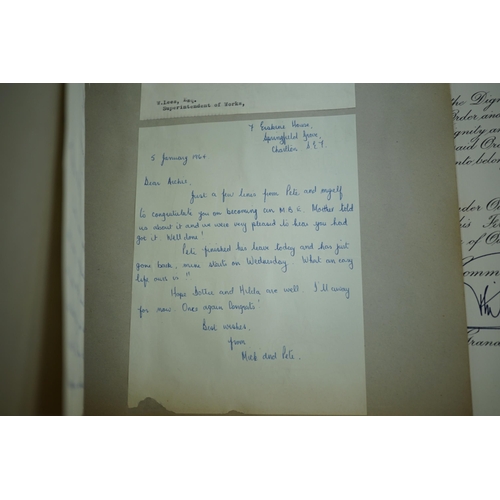 H.Lees, Esq.
Superintendent of Works,
7 Erskine House,
Springfield Grove,
Charlton S.E.7
5 January 196
Dear Archie,
Just a few lines from Pete and myself
to congratulate you on becoming an M.B.E. Mother told
us about it and we were very pleased to hear you had
got it. Well done!
Pete finished his leave today and has just
gone back, mine starts on Wednesday. What an easy
life ours is"
Hope Dottie and Hilda are well. I'll away
for now. Once again Congrats!
Best wishes,
from
Mick and Pete.
the Dig
Order and
ignity a
said Or
nto belon
nder O
his
of O
Comm
rand